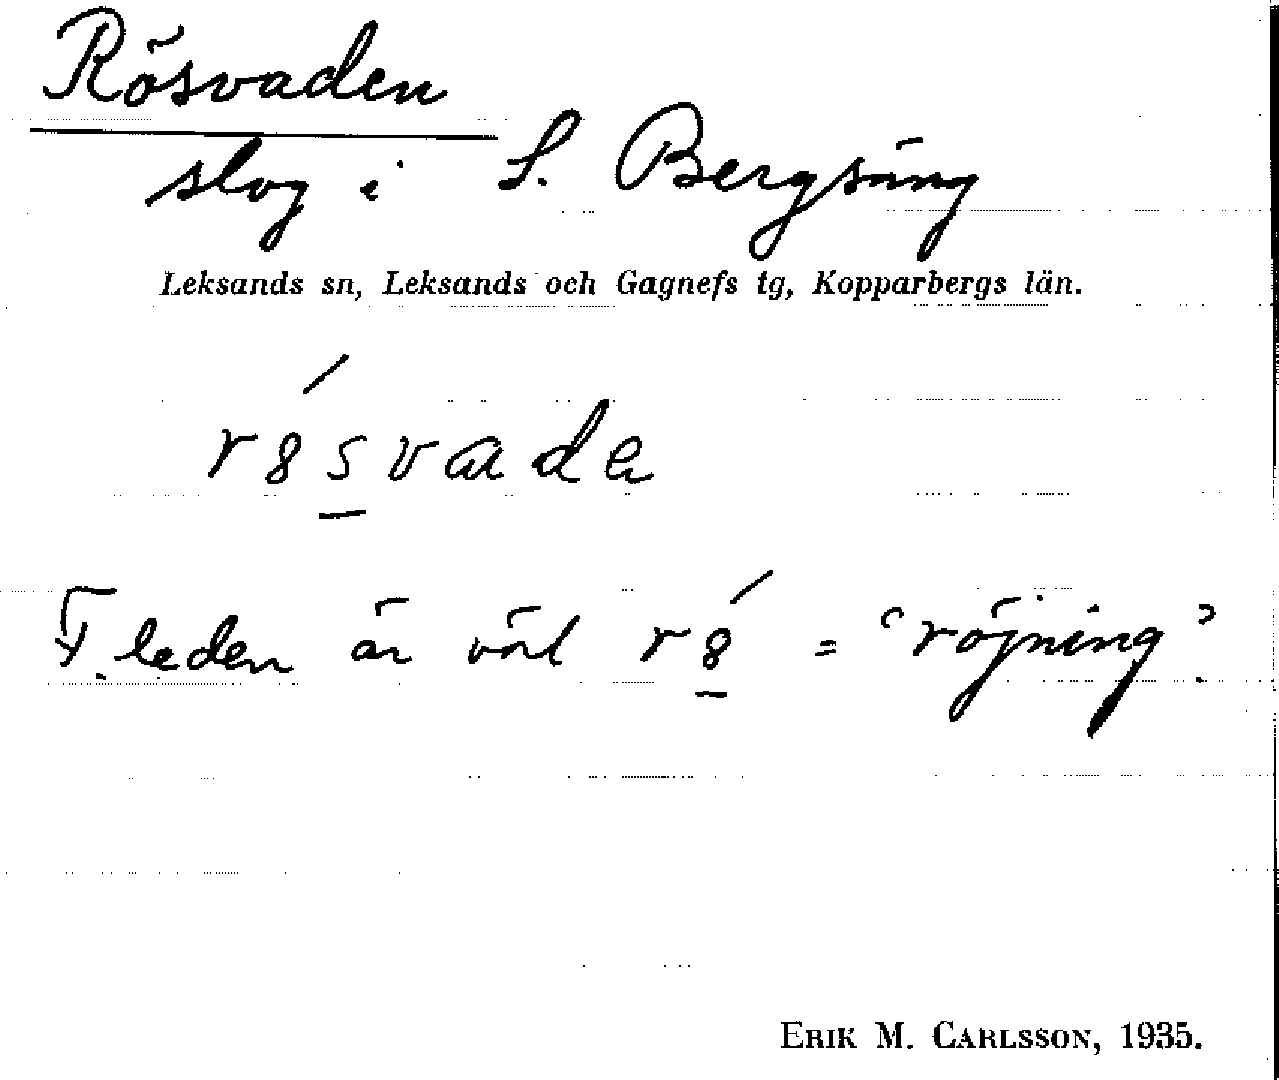 Rösvaden
slog i S. Bergsäng
Leksands sn, Leksands och Gagnefs tg, Kopparbergs län.
r8svada
F. leden är väl r8 = 'röjning'.
ERIK M. CARLSSON, 1935.